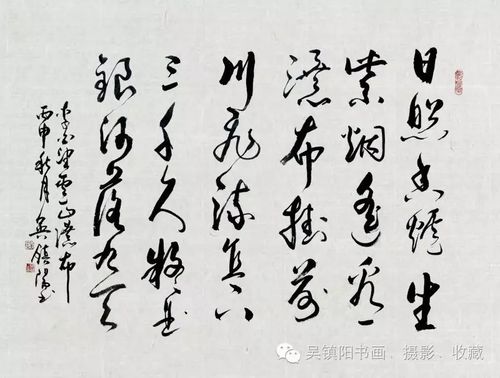 日照香爐生
紫烟遥看
瀑布掛前
川飛流直下
三千尺疑是
銀河落九天
李白望廬山瀑布
丙申秋月吴镇陽书
吴镇阳书画、摄影、收藏